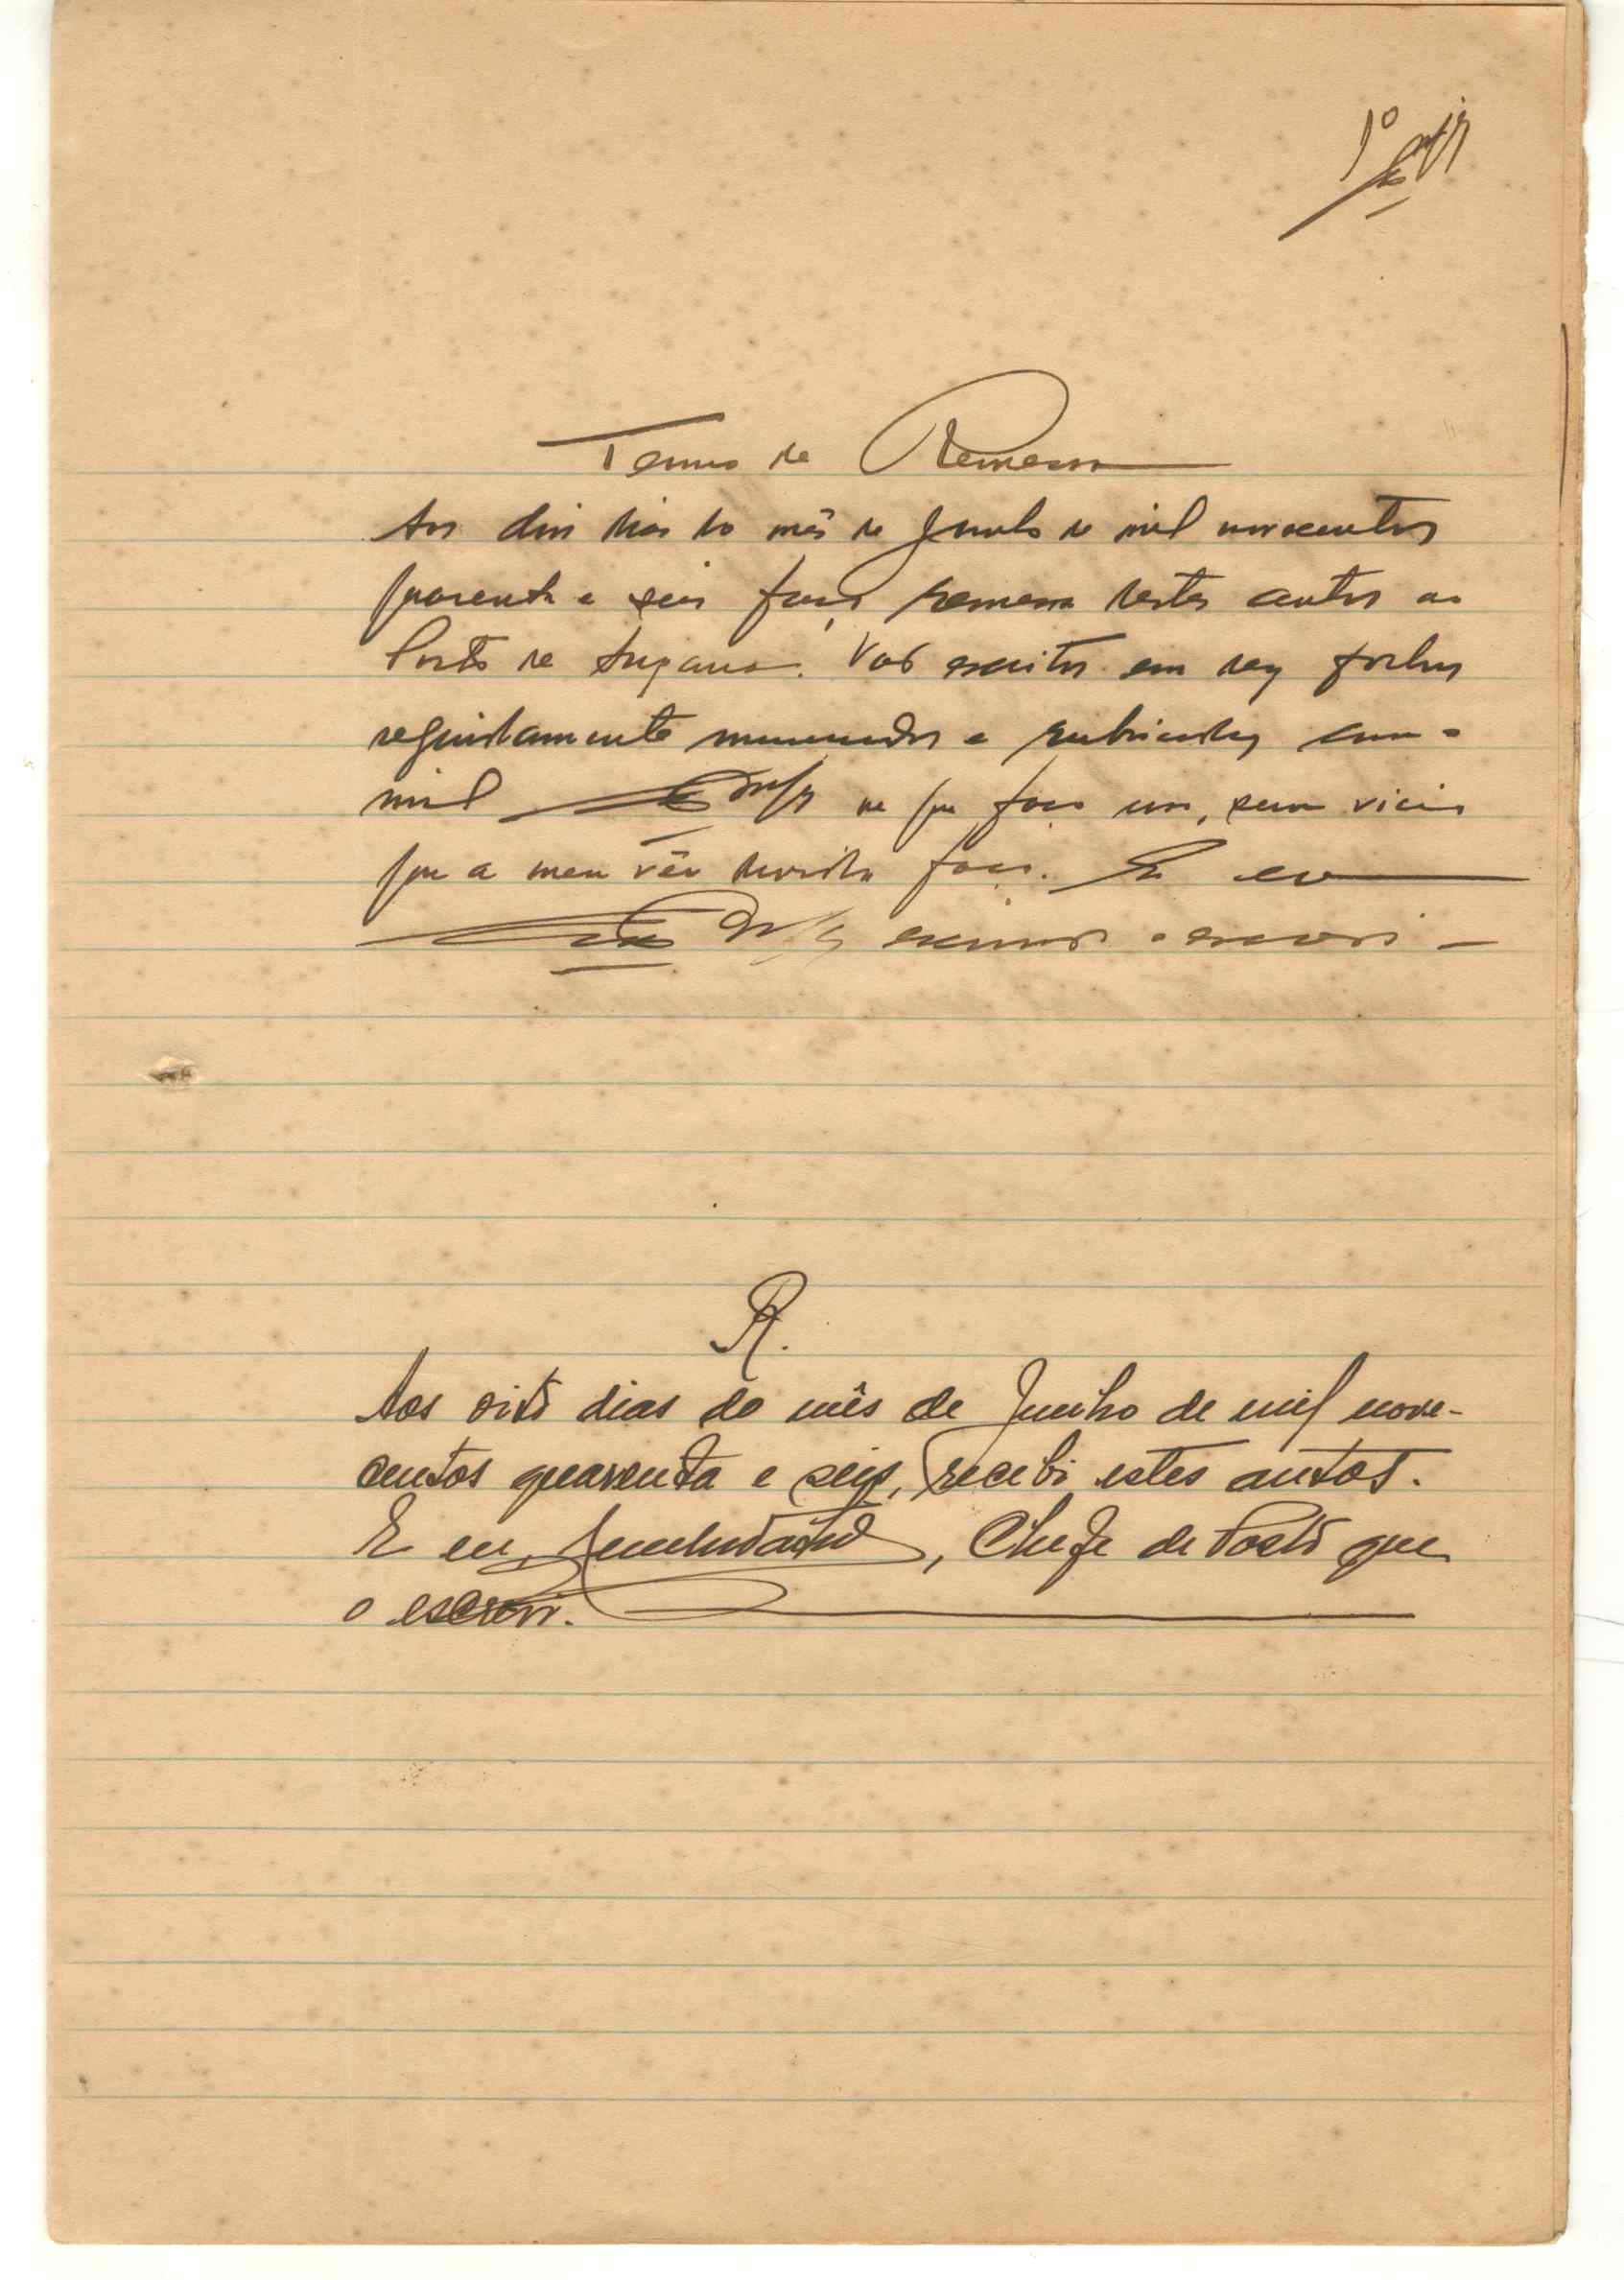 Termo de Remessa
Aos dois dias do mês de Junho de mil novecentos
quarenta e seis faço remessa destes autos ao
Posto de . Vão escritos em dez folhas
seguidamente numeradas e rubricadas com o
meu de que faço uso, sem vicio
que a meu vêr duvida faça. E eu
escrivão o escrevi
R.
Aos oito dias do mês de Junho de mil nove-
centos quarenta e seis, recebi estes autos.
E eu, , Chefe de Posto que
o escrevi.